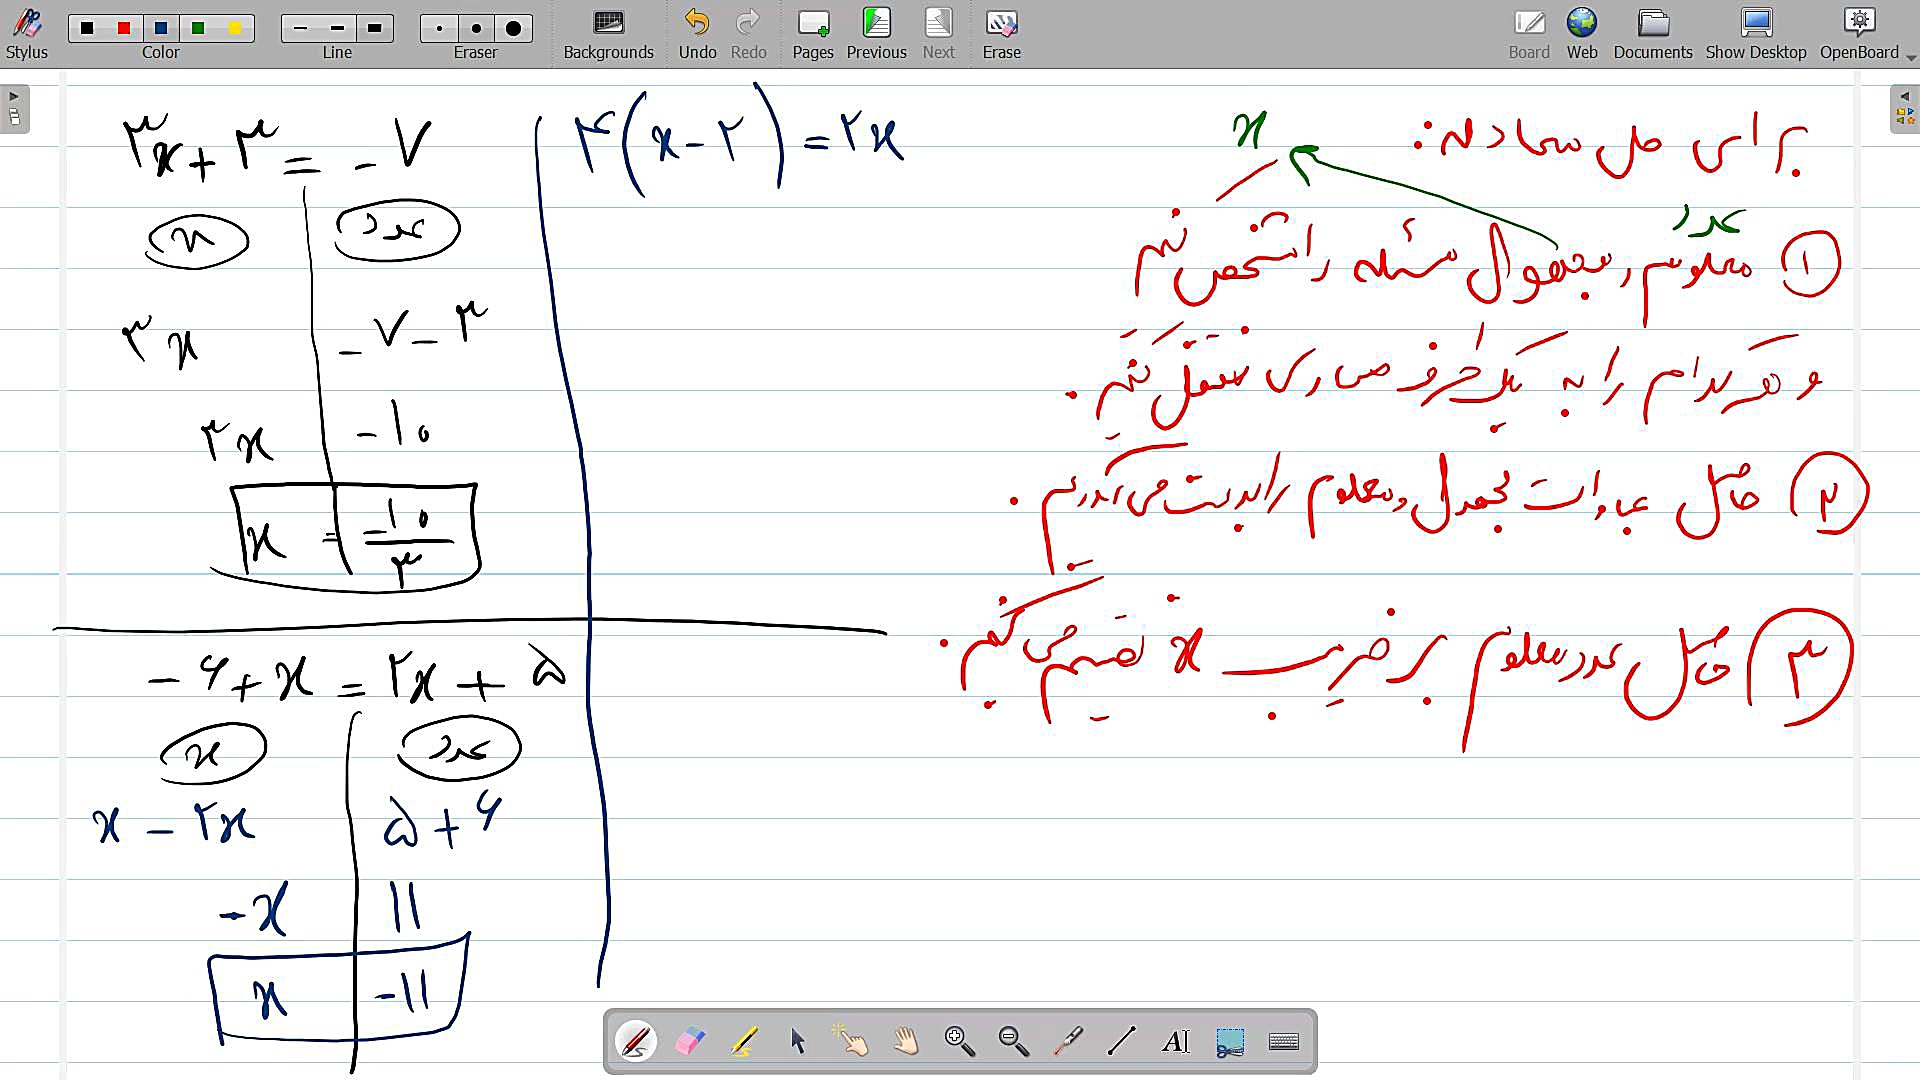 Stylus Color Line Eraser Backgrounds Undo Redo Pages Previous Next Erase Board Web Documents Show Desktop OpenBoard
برای حل معادله:
x
عدد
① معلوم و مجهول مسئله را مشخص کنیم
و هر کدام را به یک طرف مساوی منتقل کنیم.
② حاصل عبارات مجهول و معلوم را بدست می‌آوریم.
③ حاصل عدد معلوم بر ضریب x تقسیم می‌کنیم.
۳x + ۳ = -۷
x عدد
۳x -۷-۳
۳x -۱۰
x = -۱۰/۳
-۶+x = ۲x + ۵
x عدد
x - ۲x ۵+۶
-x ۱۱
x -۱۱
۴(x-۲) = ۲x
AI